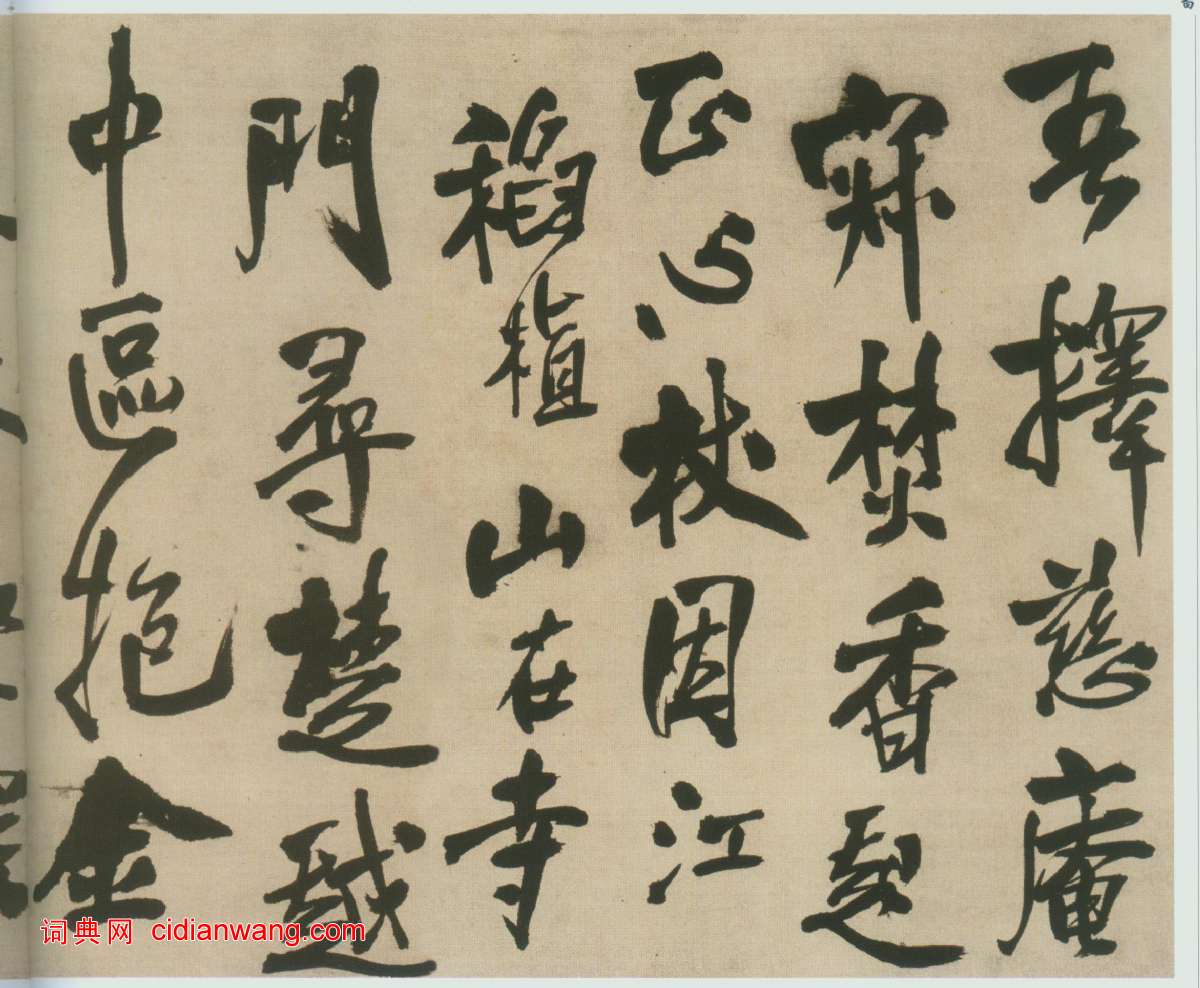 吾擇慈庵
焚香起
正心杖因江
山在寺
門尋楚越
中區抱金
词典网 cidianwang.com